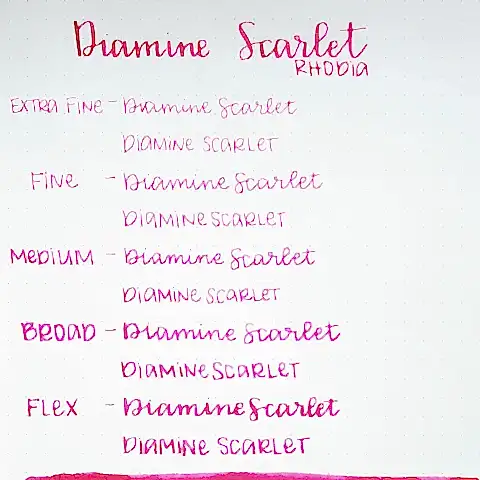 Diamine Scarlet
RHODIA
EXTRA FINE - Diamine Scarlet
DIAMINE SCARLET
FINE - Diamine Scarlet
DIAMINE SCARLET
MEDIUM - Diamine Scarlet
DIAMINE SCARLET
BROAD - Diamine Scarlet
DIAMINE SCARLET
FLEX - Diamine Scarlet
DIAMINE SCARLET